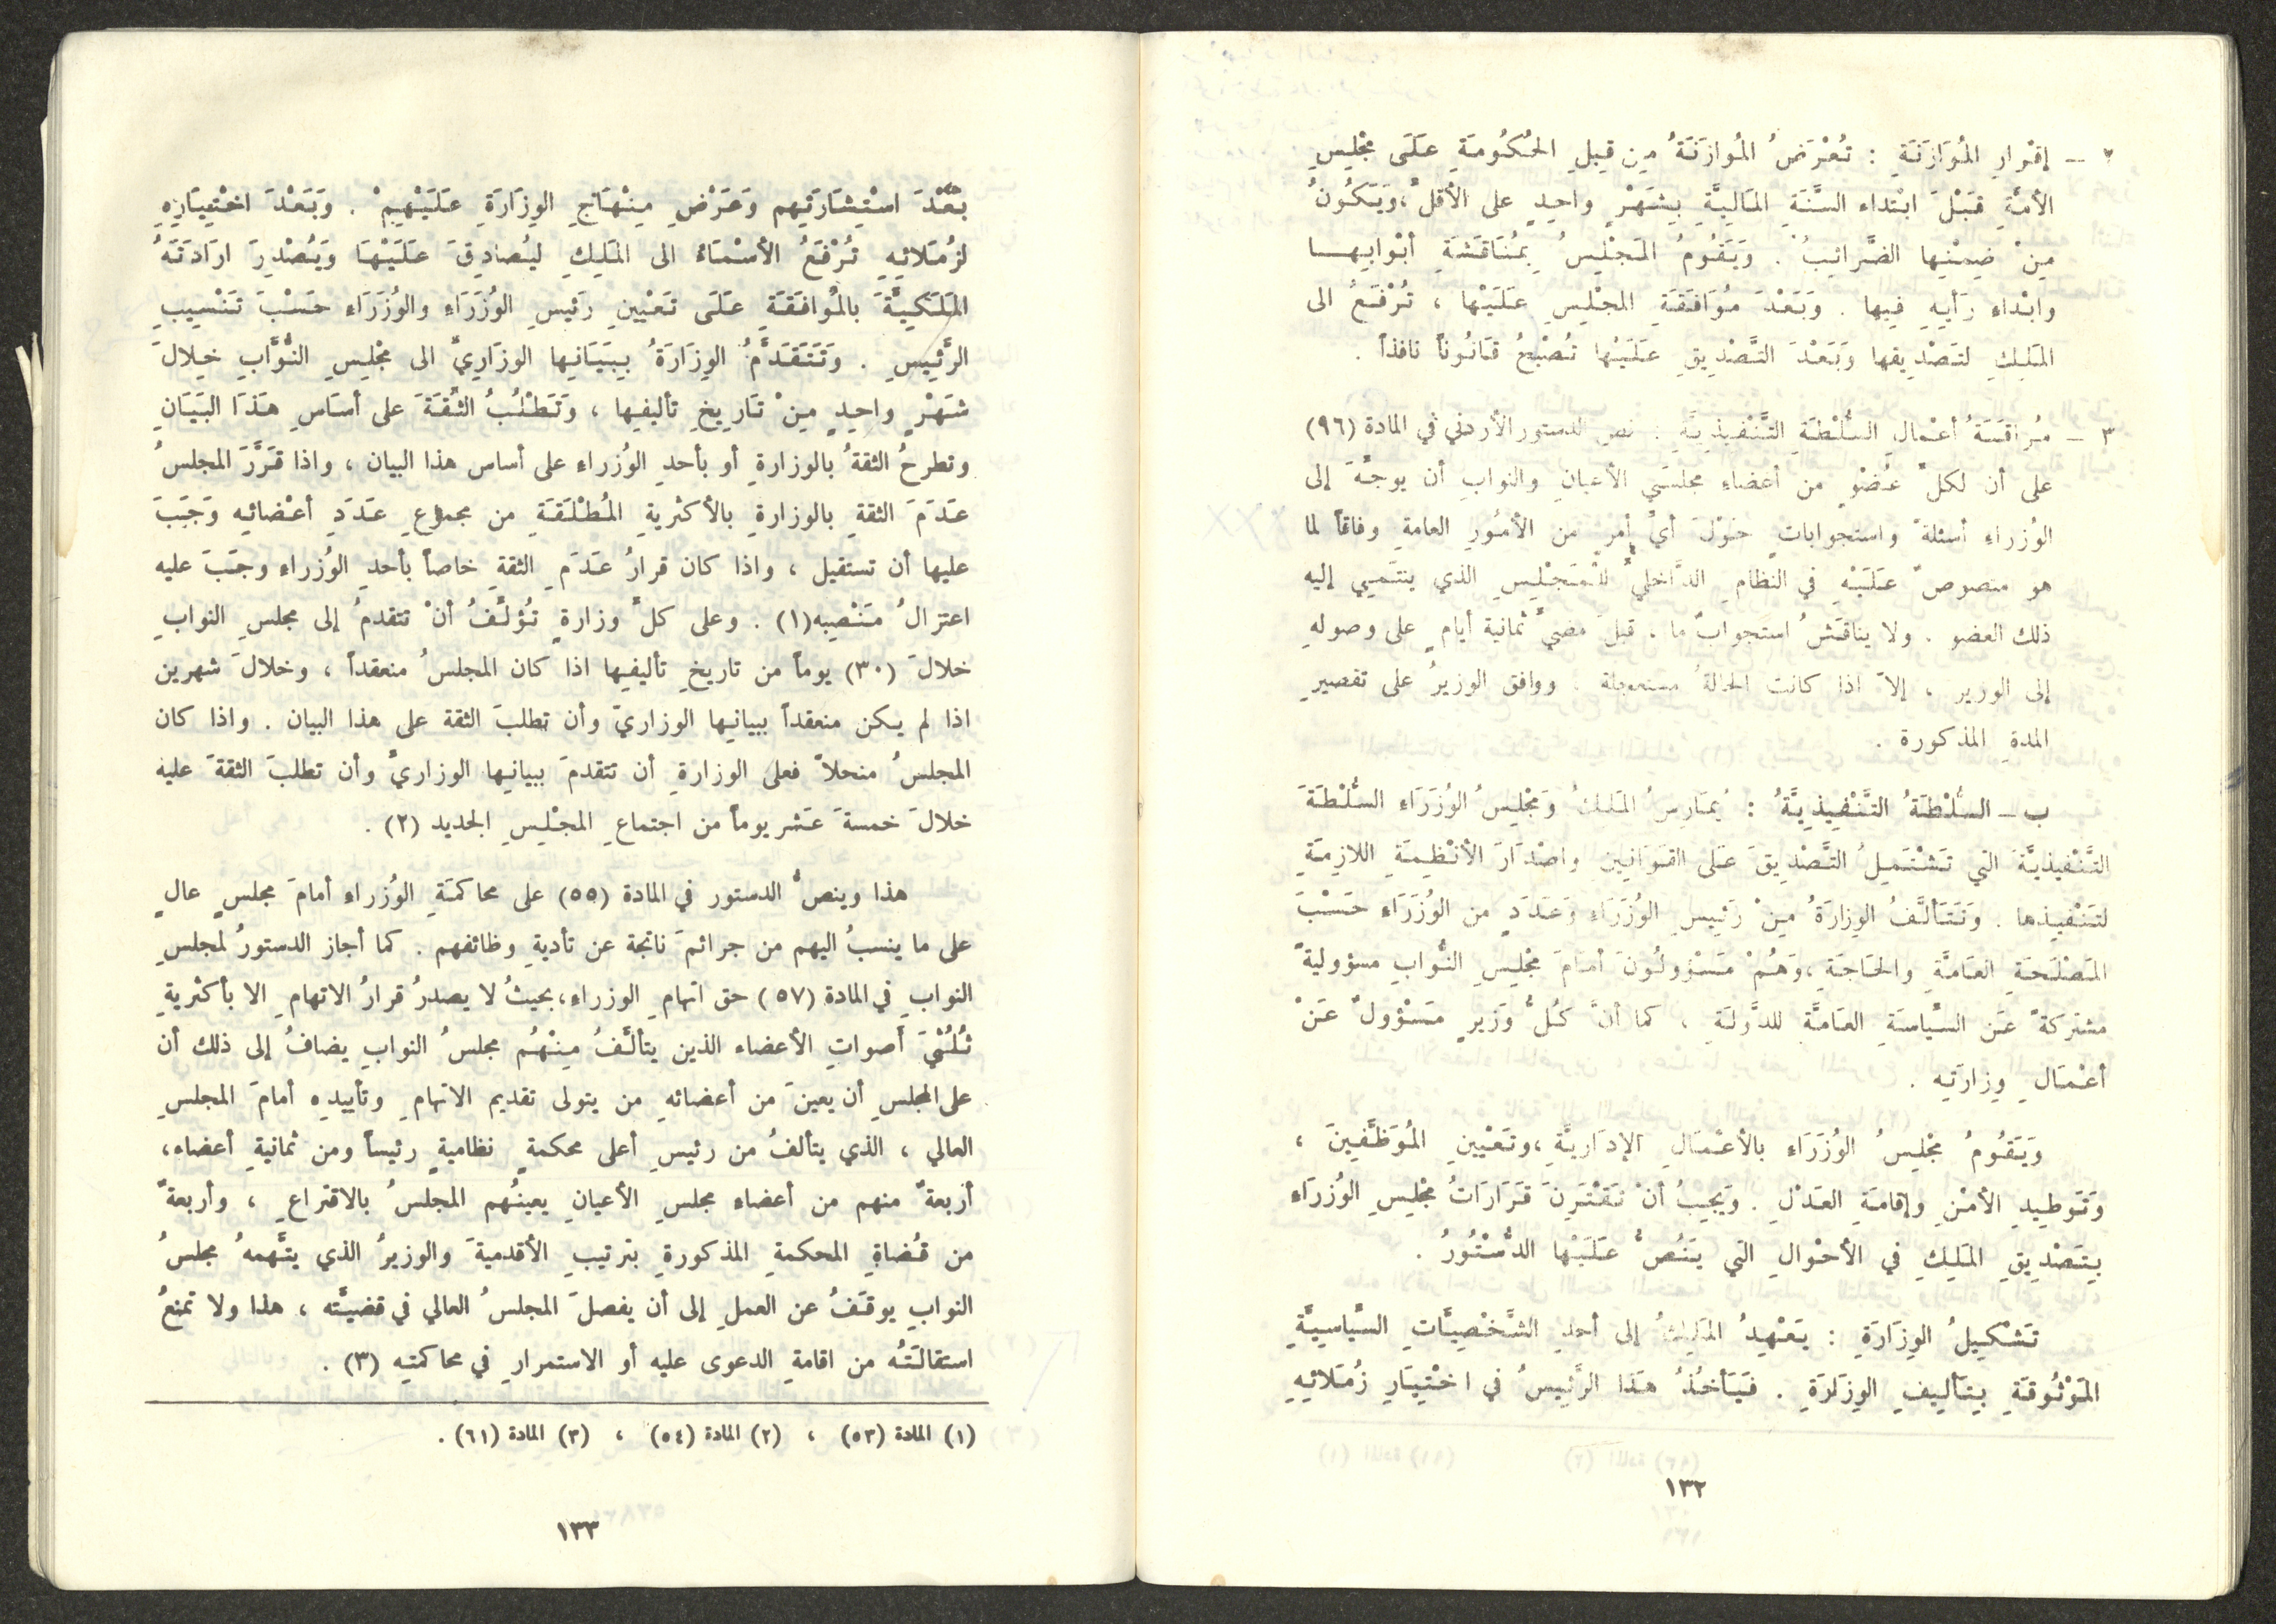 ٢ – إقْرار المُوَازَنَةِ : تُعْرَضُ المُوازَنَةُ مِن قِبَلِ الحُكُومَةِ عَلَى مجْلِسِ
الأمَّةِ قَبْلَ ابْتداء السَّنَةِ المَالِيَّةِ بِشَهْرٍ واحِدٍ على الأقلِّ، وَيَكُونُ
مِنْ ضِمْنِها الضَّرائِبُ . وَيَقُومُ المَجْلِسُ بِمُنَاقَشَةِ أبْوابِهَا
وابْداء رَأيِهِ فِيها . وَبَعْدَ مُوَافَقَةِ المجْلِسِ عَلَيْها ، تُرْفَعُ الى
المَلِكِ لتَصْدِيقها وَبَعْدَ التَّصْدِيقِ عَلَيْها تُصْبِعُ قَانُوناً نافذاً .
٣ – مُراقَبَةُ أعْمالِ السُّلْطَةِ التَّنْفِيذِيَّةِ . نص الدستور الأردني في المادة (٩٦)
على أن لكلِّ عُضْوٍ من أعضاءِ مجلسَي الأعيانِ والنوابِ أن يوجِّهَ إلى
الوُزراءِ أسئلةً واستجواباتٍ حَوْلَ أيِّ أمرٍ من الأمُورِ العامةِ وفاقاً لما
هو منصوصٌ عَلَيْهِ في النظامِ الدَّاخليِّ للْمَجْلِسِ الذي ينتَمي إليه
ذلك العضو . ولا يناقَشُ استجوابٌ ما ، قبلَ مضيِّ ثمانية أيامٍ على وصولهِ
إلى الوزير ، إلاّ اذا كانت الحالةُ مستعجلة . ووافق الوزيرُ على تقصيرِ
المدةِ المذكورة .
ب – السُّلْطَةُ التَّنْفِيذِيَّةُ : يُمَارِسُ المَلِكُ وَمَجْلِسُ الوُزَرَاءِ السُّلْطَةَ
التَّنْفيذيَّةَ التي تَشْتَمِلُ التَّصْدِيقَ عَلى القَوَانِين واصْدَارَ الأنْظِمَةِ اللازِمَةِ
لتَنْفِيذها . وَتَتَألَّفُ الوِزارَةُ مِنْ رَئِيسِ الوُزَرَاءِ وَعَدَدٍ من الوُزَرَاءِ حَسْبَ
المَصْلَحَةِ العَامَّةِ والحَاجَةِ ، وَهُمْ مَسْؤولُونَ أمَامَ مجْلِسِ النُّوابِ مسؤوليةً
مشتركةً عَن السِّياسَةِ العَامَّةِ للدَّولَةِ ، كما أنَّ كُلَّ وَزيرٍ مَسْؤولٌ عَنْ
أعْمَالِ وِزارَتِه .
وَيَقُومُ مجْلِسُ الوُزَرَاءِ بالأعْمَالِ الإدَاريَّةِ ، وتَعْيينِ المُوَظَّفِينَ ،
وَتَوطِيدِ الأمْنِ وَإقامَةِ العَدْلِ . وَيَجِبُ أنْ تَقْتَرِنَ قَرَارَاتُ مجْلِسِ الوُزرَاءِ
بِتَصْدِيقِ المَلِكِ في الأحْوالِ التي يَنُصُّ عَلَيْها الدُّسْتُورُ .
تَشْكِيلُ الوِزَارَةِ : يَعْهِدُ المَلِكُ إلى أحدِ الشَّخْصِيَّاتِ السِّيَاسِيَّةِ
المَوْثُوقَةِ بِتَأليفِ الوِزَارَةِ . فَيَأخُذُ هَذَا الرَّئيسُ في اخْتِيَارِ زُمَلائِهِ
١٣٢
بعْدَ اسْتِشَارَتِهِم وَعَرْضِ مِنْهَاجِ الوِزَارَةِ عَلَيْهِمْ . وَبَعْدَ اخْتِيَارِهِ
لزُمَلائِهِ تُرْفَعُ الأسْمَاءُ الى المَلِكِ ليُصَادِقَ عَلَيْهَا وَيُصْدِرَ ارَادَتَهُ
المَلَكِيَّةَ بالمُوافَقَةِ عَلَى تَعْيينِ رَئِيسِ الوُزَرَاءِ والوُزَرَاءِ حَسْبَ تَنْسِيبِ
الرَّئِيسِ . وَتَتَقَدَّمُ الوِزَارَةُ بِبَيَانِها الوِزَارِيِّ الى مجْلِسِ النُّوَّابِ خِلالَ
شهْرٍ واحِدٍ مِنْ تَارِيخِ تأليفِها ، وَتَطْلُبُ الثَّقَةَ على أسَاسِ هَذَا البَيَانِ
وتطرحُ الثقةُ بالوزارةِ أو بأحدِ الوُزراءِ على أساس هذا البيان ، واذا قَرَّرَ المجلسُ
عَدَمَ الثقةِ بالوزارةِ بالأكثريةِ المُطْلَقَةِ من مجموعِ عَدَدِ أعْضائِه وَجَبَ
عليها أن تستقيل ، واذا كان قرارُ عَدَمِ الثقةِ خاصاً بأحدِ الوُزراءِ وجَبَ عليه
اعتزالُ مَنْصِبه(١) . وعلى كلِّ وزارةٍ تُؤلَّفُ أنْ تتقدمُ إلى مجلسِ النوابِ
خلالَ (٣٠) يوماً من تاريخِ تأليفِها اذا كان المجلسُ منعقداً ، وخلالَ شهرين
اذا لم يكن منعقداً ببيانِها الوزاريّ وأن تطلبَ الثقة على هذا البيان . واذا كان
المجلسُ منحلاً فعلى الوزارةِ أن تتقدمَ ببيانِها الوزاريِّ وأن تطلبَ الثقةَ عليه
خلالَ خمسةَ عَشر يوماً من اجتماعِ المجْلِسِ الجديد (٢) .
هذا وينصُّ الدستور في المادة (٥٥) على محاكمَةِ الوُزراءِ أمامَ مجلسٍ عالٍ
على ما ينسبُ اليهم من جرائمَ ناتجة عن تأديةِ وظائفهم . كما أجاز الدستورُ لمجلسِ
النوابِ في المادة (٥٧) حق اتهامِ الوزراء، بحيثُ لا يصدرُ قرارُ الاتهامِ الا بأكثريةِ
ثُلُثَيْ أصواتِ الأعضاء الذين يتألَّفُ مِنْهُم مجلسُ النوابِ يضافُ إلى ذلك أن
على المجلسِ أن يعينَ من أعضائهِ من يتولى تقديم الاتهامِ وتأييدِه أمامَ المجلسِ
العالي ، الذي يتألفُ من رئيسِ أعلى محكمةٍ نظاميةٍ رئيساً ومن ثمانيةِ أعضاء،
أربعةٌ منهم من أعضاءِ مجلسِ الأعيانِ يعينُهم المجلسُ بالاقتراعِ ، وأربعةٌ
من قُضاةِ المحكمةِ المذكورةِ بترتيبِ الأقدميةَ والوزيرُ الذي يتَّهمهُ مجلسُ
النوابِ يوقَفُ عن العملِ إلى أن يفصلَ المجلسُ العالي في قضيَّته ، هذا ولا تمنعُ
استقالَتُه من اقامةِ الدعوى عليه أو الاستمرارِ في محاكمتِه (٣) .
(١) المادة (٥٣) ، (٢) المادة (٥٤) ، (٣) المادة (٦١) .
١٣٣